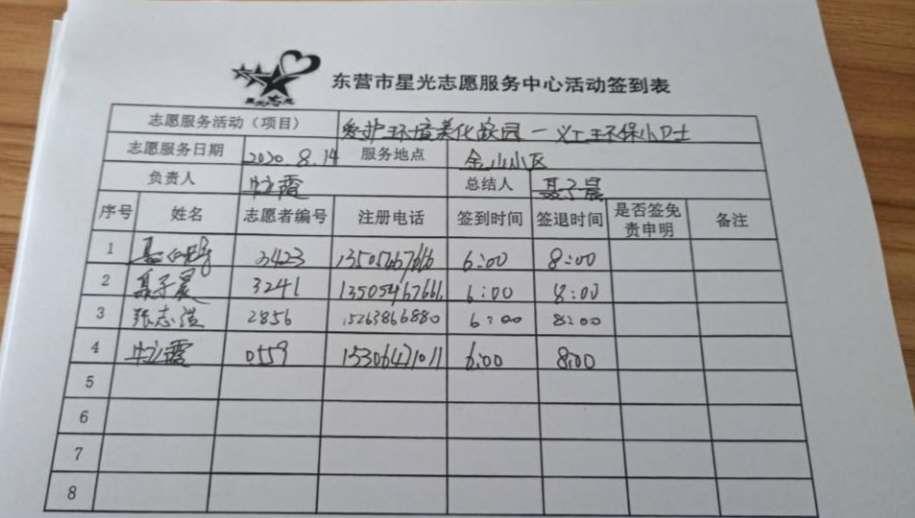 东营市星光志愿服务中心活动签到表
志愿服务活动（项目） 爱护环境美化校园一义工环保小卫士
志愿服务日期 2020.8.14 服务地点 金小区
负责人 霞 总结人 聂子晨
序号 姓名 志愿者编号 注册电话 签到时间 签退时间 是否签免责申明 备注
1 3423 6:00 8:00
2 聂子晨 3241 13505467661 6:00 8:00
3 张志浩 2856 15263866880 6:00 8:00
4 霞 0559 15306471011 6:00 8:00
5
6
7
8